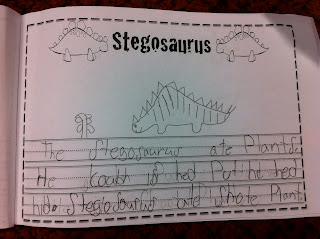 Stegosaurus
The Stegosaurus ate Plants.
He hed Put he hed
hide Stegosaurus ate Plant